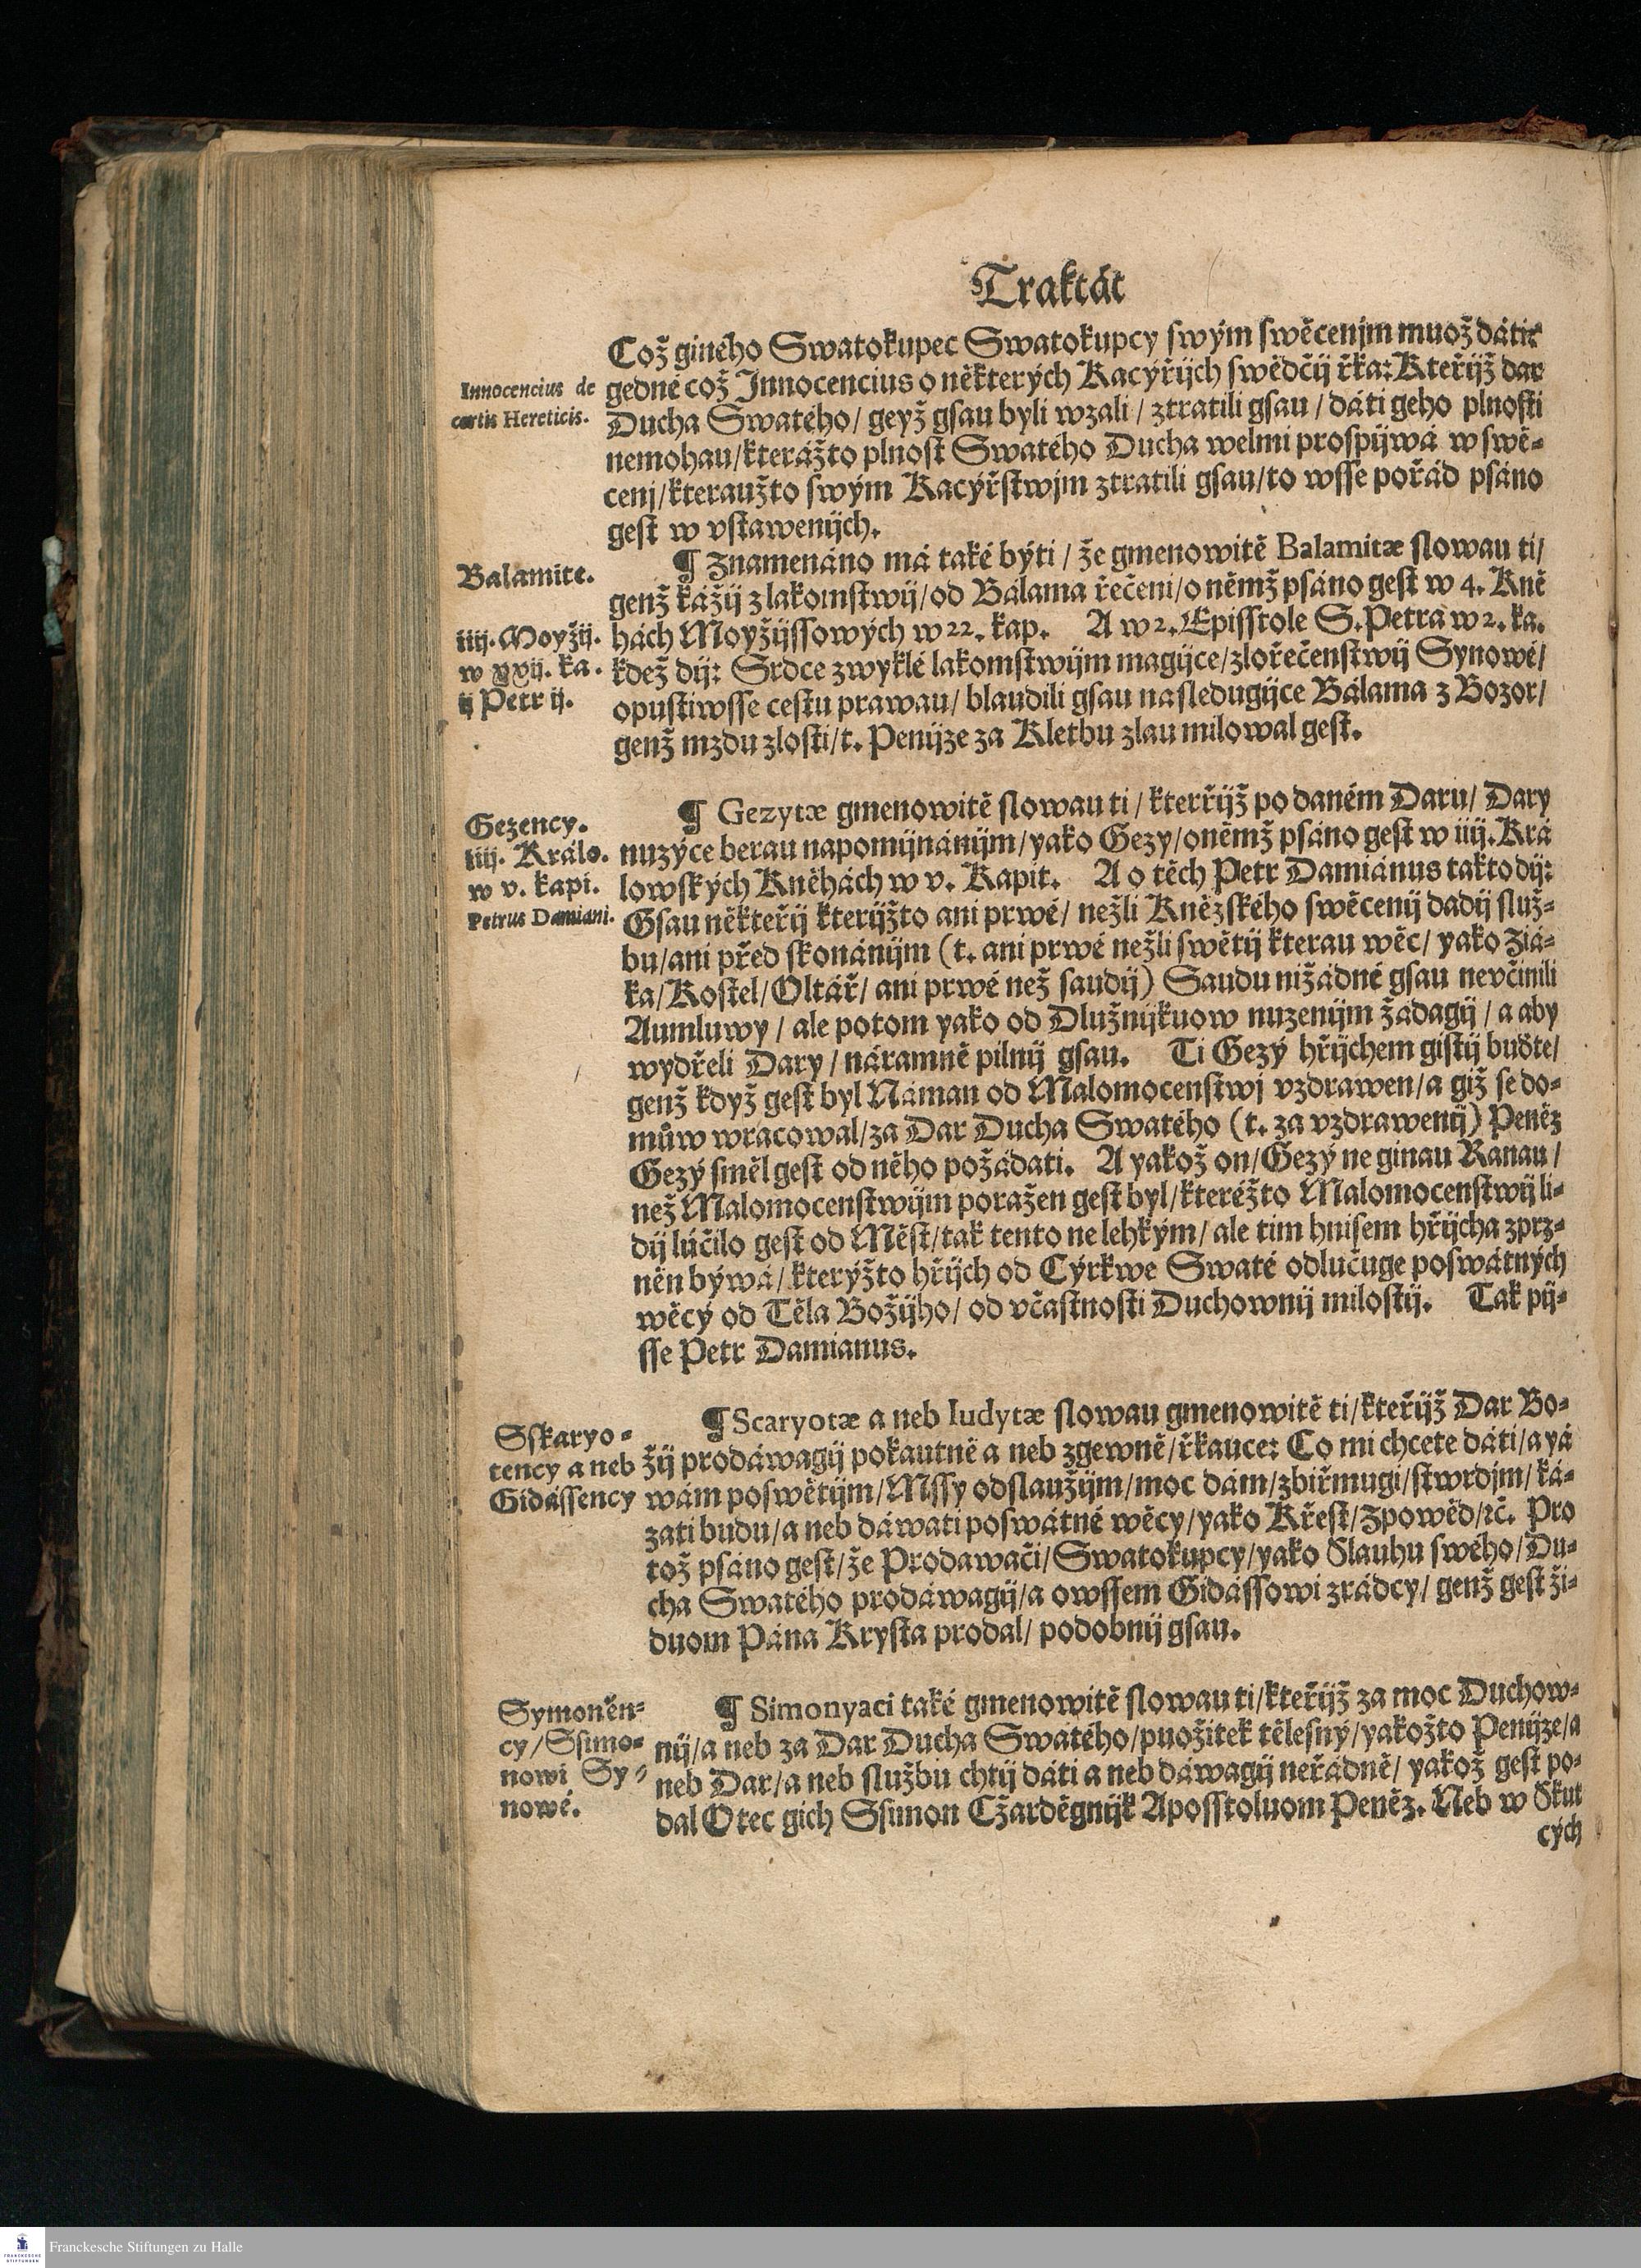 Traktát
Což giného Swatokupec Swatokupcy swým swěcenjm muož dáti:
gedné což Innocencius o některých Kacyřijch swědčij řka: Kteřijž dar
Ducha Swatého / geyž gsau byli wzali / ztratili gsau / dáti geho plnosti
nemohau / kterážto plnost Swatého Ducha welmi prospijwá w swě-
cenj / kteraužto swým Kacyřstwjm ztratili gsau / to wsse pořád psáno
gest w vstawenijch.
Innocencius de
certis Hereticis.
¶ Znamenáno má také býti / že gmenowitě Balamitæ slowau ti /
genž kážij z lakomstwij / od Bálama řečeni / o němž psáno gest w 4. Kně
hách Moyžijssowých w 22. kap. A w 2. Episstole S. Petra w 2. ka.
kdež dij: Srdce zwyklé lakomstwijm magijce / zlořečenstwij Synowé /
opustiwsse cestu prawau / blaudili gsau následugijce Bálama z Bozor /
genž mzdu zlosti / t. Penijze za Kletbu zlau milowal gest.
Balamite.
iiij. Moyžij.
w xxij. ka.
ij Petr ij.
¶ Gezytæ gmenowitě slowau ti / kteřijž po daném Daru / Dary
nuzýce berau napomijnánijm / yako Gezy / o němž psáno gest w iiij. Krá
lowských Kněhách w v. Kapit. A o těch Petr Damiánus takto dij:
Gsau někteřij kterijžto ani prwé / nežli Kněžského swěcenij dadij služ-
bu / ani před skonánijm (t. ani prwé nežli swětij kterau wěc / yako Žiá-
ka / Kostel / Oltář / ani prwé než saudij) Saudu nižádné gsau nevčinili
Aumluwy / ale potom yako od Dlužnijkuow nuzenijm žádagij / a aby
wydřeli Dary / náramně pilnij gsau. Ti Gezý hřijchem gistij buďte /
genž když gest byl Náman od Malomocenstwj vzdrawen / a giž se do-
můw wracowal / za Dar Ducha Swatého (t. za vzdrawenij) Peněz
Gezý směl gest od něho požádati. A yakož on / Gezý ne ginau Ranau /
než Malomocenstwijm poražen gest byl / kteréžto Malomocenstwij li-
dij lúčilo gest od Měst / tak tento ne lehkým / ale tim hnisem hřijcha zprz-
něn býwá / kterýžto hřijch od Cýrkwe Swaté odlučuge poswátných
wěcý od Těla Božijho / od včastnosti Duchownij milostij. Tak pij-
sse Petr Damianus.
Gezency.
iiij. Králo.
w v. kapi.
Petrus Damiani.
¶ Scaryotæ a neb Iudytæ slowau gmenowitě ti / kteřijž Dar Bo-
žij prodáwagij pokautně a neb zgewně / řkauce: Co mi chcete dáti / a yá
wám poswětijm / Mssy odslaužijm / moc dám / zbiřmugi / stwrdjm / ká-
zati budu / a neb dáwati poswátné wěcy / yako Křest / Zpowěd / ꝛč. Pro
tož psáno gest / že Prodawači / Swatokupcy / yako Slauhu swého / Du-
cha Swatého prodáwagij / a owssem Gidássowi zrádcy / genž gest ži-
duom Pána Krysta prodal / podobnij gsau.
Sskaryo-
tency a neb
Gidássency
¶ Simonyaci také gmenowitě slowau ti / kteřijž za moc Duchow-
nij / a neb za Dar Ducha Swatého / puožitek tělesný / yakožto Penijze / a
neb Dar / a neb službu chtij dáti a neb dáwagij neřádně / yakož gest po-
dal Otec gich Ssimon Cžarděgnijk Aposstoluom Peněz. Neb w Skut
cých
Symoněn-
cy / Ssimo-
nowi Sy-
nowé.
Franckesche Stiftungen zu Halle